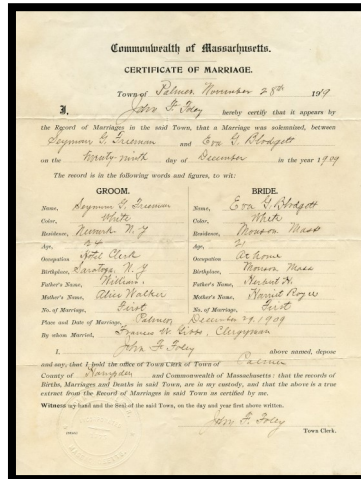 Commonwealth of Massachusetts.
CERTIFICATE OF MARRIAGE.
Town of Palmer, November 28th 1919
I, John F. Foley hereby certify that it appears by
the Record of Marriages in the said Town, that a Marriage was solemnized, between
Seymour G. Freeman and Eva G. Blodgett
on the twenty ninth day of December in the year 1909
The record is in the following words and figures, to wit:
GROOM.
Name, Seymour G. Freeman
Color, White
Residence, Newark N. J
Age, 24
Occupation Hotel Clerk
Birthplace, Saratoga, N. Y
Father's Name, William,
Mother's Name, Alice Walker
No. of Marriage, First
BRIDE.
Name, Eva G. Blodgett
Color, White
Residence, Monson Mass
Age, 21
Occupation At home
Birthplace, Monson Mass
Father's Name, Herbert H.
Mother's Name, Harriet Royce
No. of Marriage, First
Place and Date of Marriage, Palmer, December 29, 1909
By whom Married, Francis W. Gibbs, Clergyman
I, John F. Foley above named, depose
and say, that I hold the office of Town Clerk of Town of Palmer
County of Hampden and Commonwealth of Massachusetts: that the records of
Births, Marriages and Deaths in said Town, are in my custody, and that the above is a true
extract from the Record of Marriages in said Town as certified by me.
Witness my hand and the Seal of the said Town, on the day and year first above written.
John F. Foley
Town Clerk.